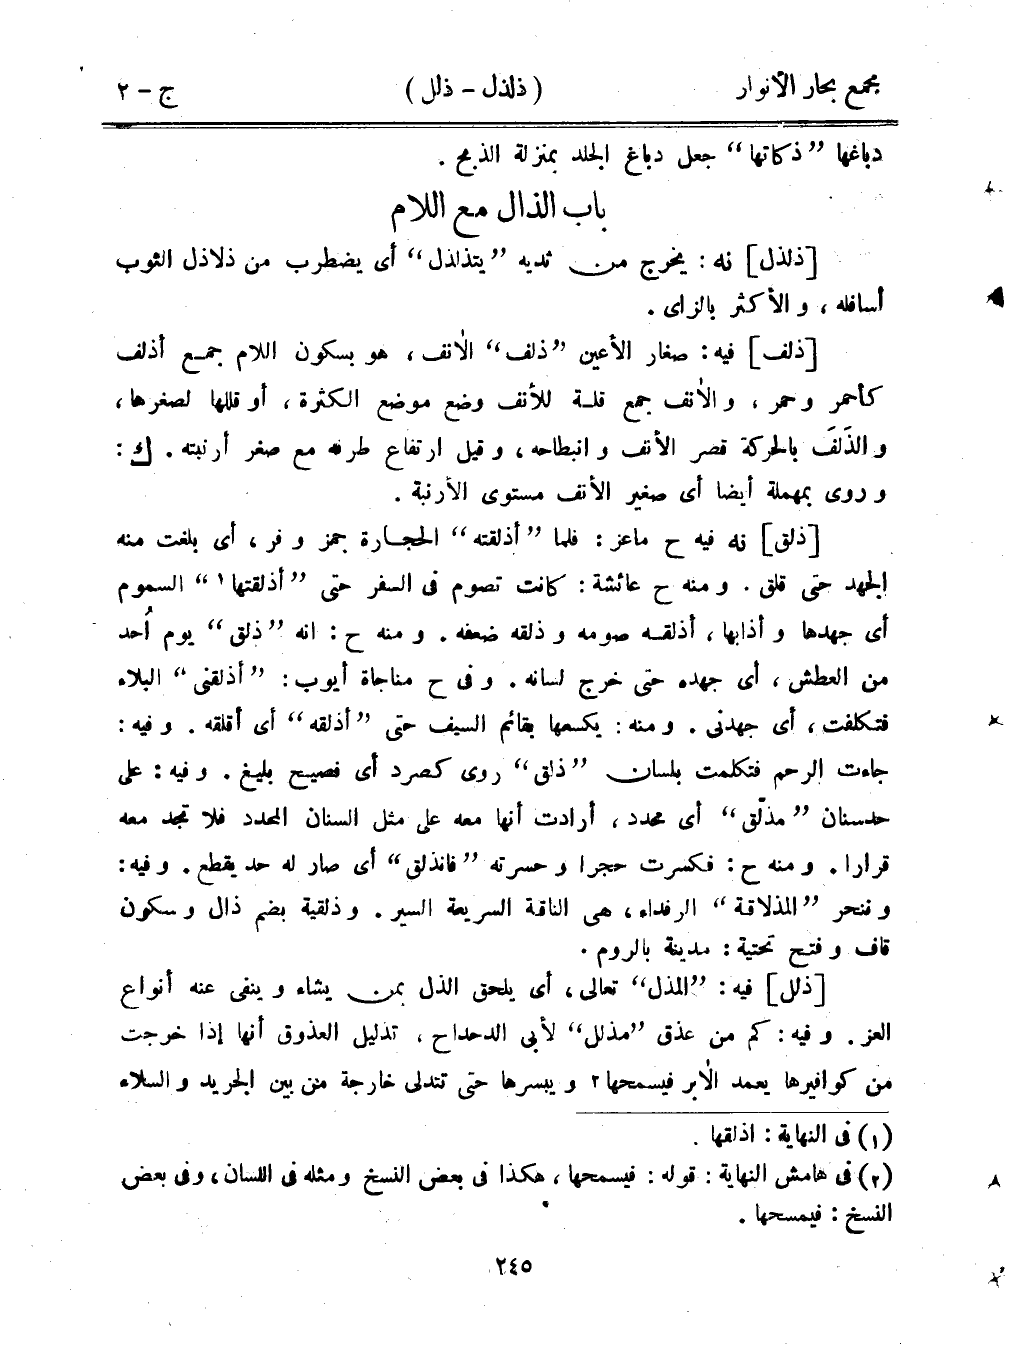 مجمع بحار الأنوار (ذلذل - ذلل) ج - ٢
دباغها ”ذكاتها“ جعل دباغ الجلد بمنزلة الذبح .
باب الذال مع اللام
[ذلذل] نه : يخرج من ثديه ”يتذلذل“ أى يضطرب من ذلاذل الثوب
أسافله ، و الأكثر بالزاى .
[ذلف] فيه : صغار الأعين ”ذلف“ الأنف ، هو بسكون اللام جمع أذلف
كأحمر و حمر ، و الأنف جمع قلة للأنف وضع موضع الكثرة ، أو قللها لصغرها ،
و الذَلَف بالحركة قصر الأنف و انبطاحه ، و قيل ارتفاع طرفه مع صغر أرنبته . ك :
و روى بمهملة أيضا أى صغير الأنف مستوى الأرنبة .
[ذلق] نه فيه ح ماعز : فلما ”أذلقته“ الحجارة جمز و فر ، أى بلغت منه
الجهد حتى قلق . و منه ح عائشة : كانت تصوم فى السفر حتى ”أذلقتها١“ السموم
أى جهدها و أذابها ، أذلقه صومه و ذلقه ضعفه . و منه ح : انه ”ذلق“ يوم أُحد
من العطش ، أى جهده حتى خرج لسانه . و فى ح مناجاة أيوب : ”أذلقنى“ البلاء
فتكلفت ، أى جهدنى . و منه : يكسعها بقائم السيف حتى ”أذلقه“ أى أقلقه . و فيه :
جاءت الرحم فتكلمت بلسان ”ذلق“ روى كصرد أى فصيح بليغ . و فيه : على
حدسنان ”مذلّق“ أى محدد ، أرادت أنها معه على مثل السنان المحدد فلا تجد معه
قرارا . و منه ح : فكسرت حجرا و حسرته ”فانذلق“ أى صار له حد يقطع . و فيه :
و ننحر ”المذلاقة“ الرفداء ، هى الناقة السريعة السير . و ذلقية بضم ذال و سكون
قاف و فتح تحتية : مدينة بالروم .
[ذلل] فيه : ”المذل“ تعالى ، أى يلحق الذل بمن يشاء و ينفى عنه أنواع
العز . و فيه : كم من عذق ”مذلل“ لأبى الدحداح ، تذليل العذوق أنها إذا خرجت
من كوافيرها يعمد الأبر فيسمحها ٢ و يبسرها حتى تتدلى خارجة من بين الجريد و السلاء
(١) فى النهاية : اذلقها .
(٢) فى هامش النهاية : قوله : فيسمحها ، هكذا فى بعض النسخ و مثله فى اللسان ، وفى بعض
النسخ : فيمسحها .
٢٤٥